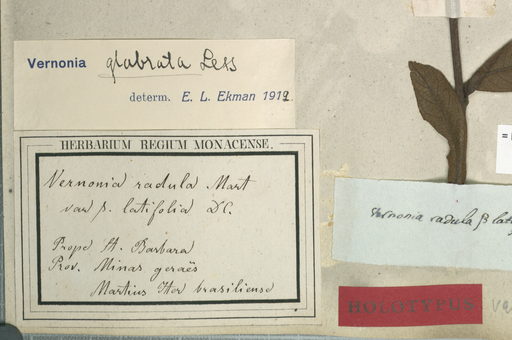 Vernonia glabrata Less
determ. E. L. Ekman 1912
HERBARIUM REGIUM MONACENSE.
Vernonia radula Mart
var β. latifolia DC.
Prope St. Barbara
Prov. Minas geraës
Martius Iter brasiliense
Vernonia radula β lati
HOLOTYPUS